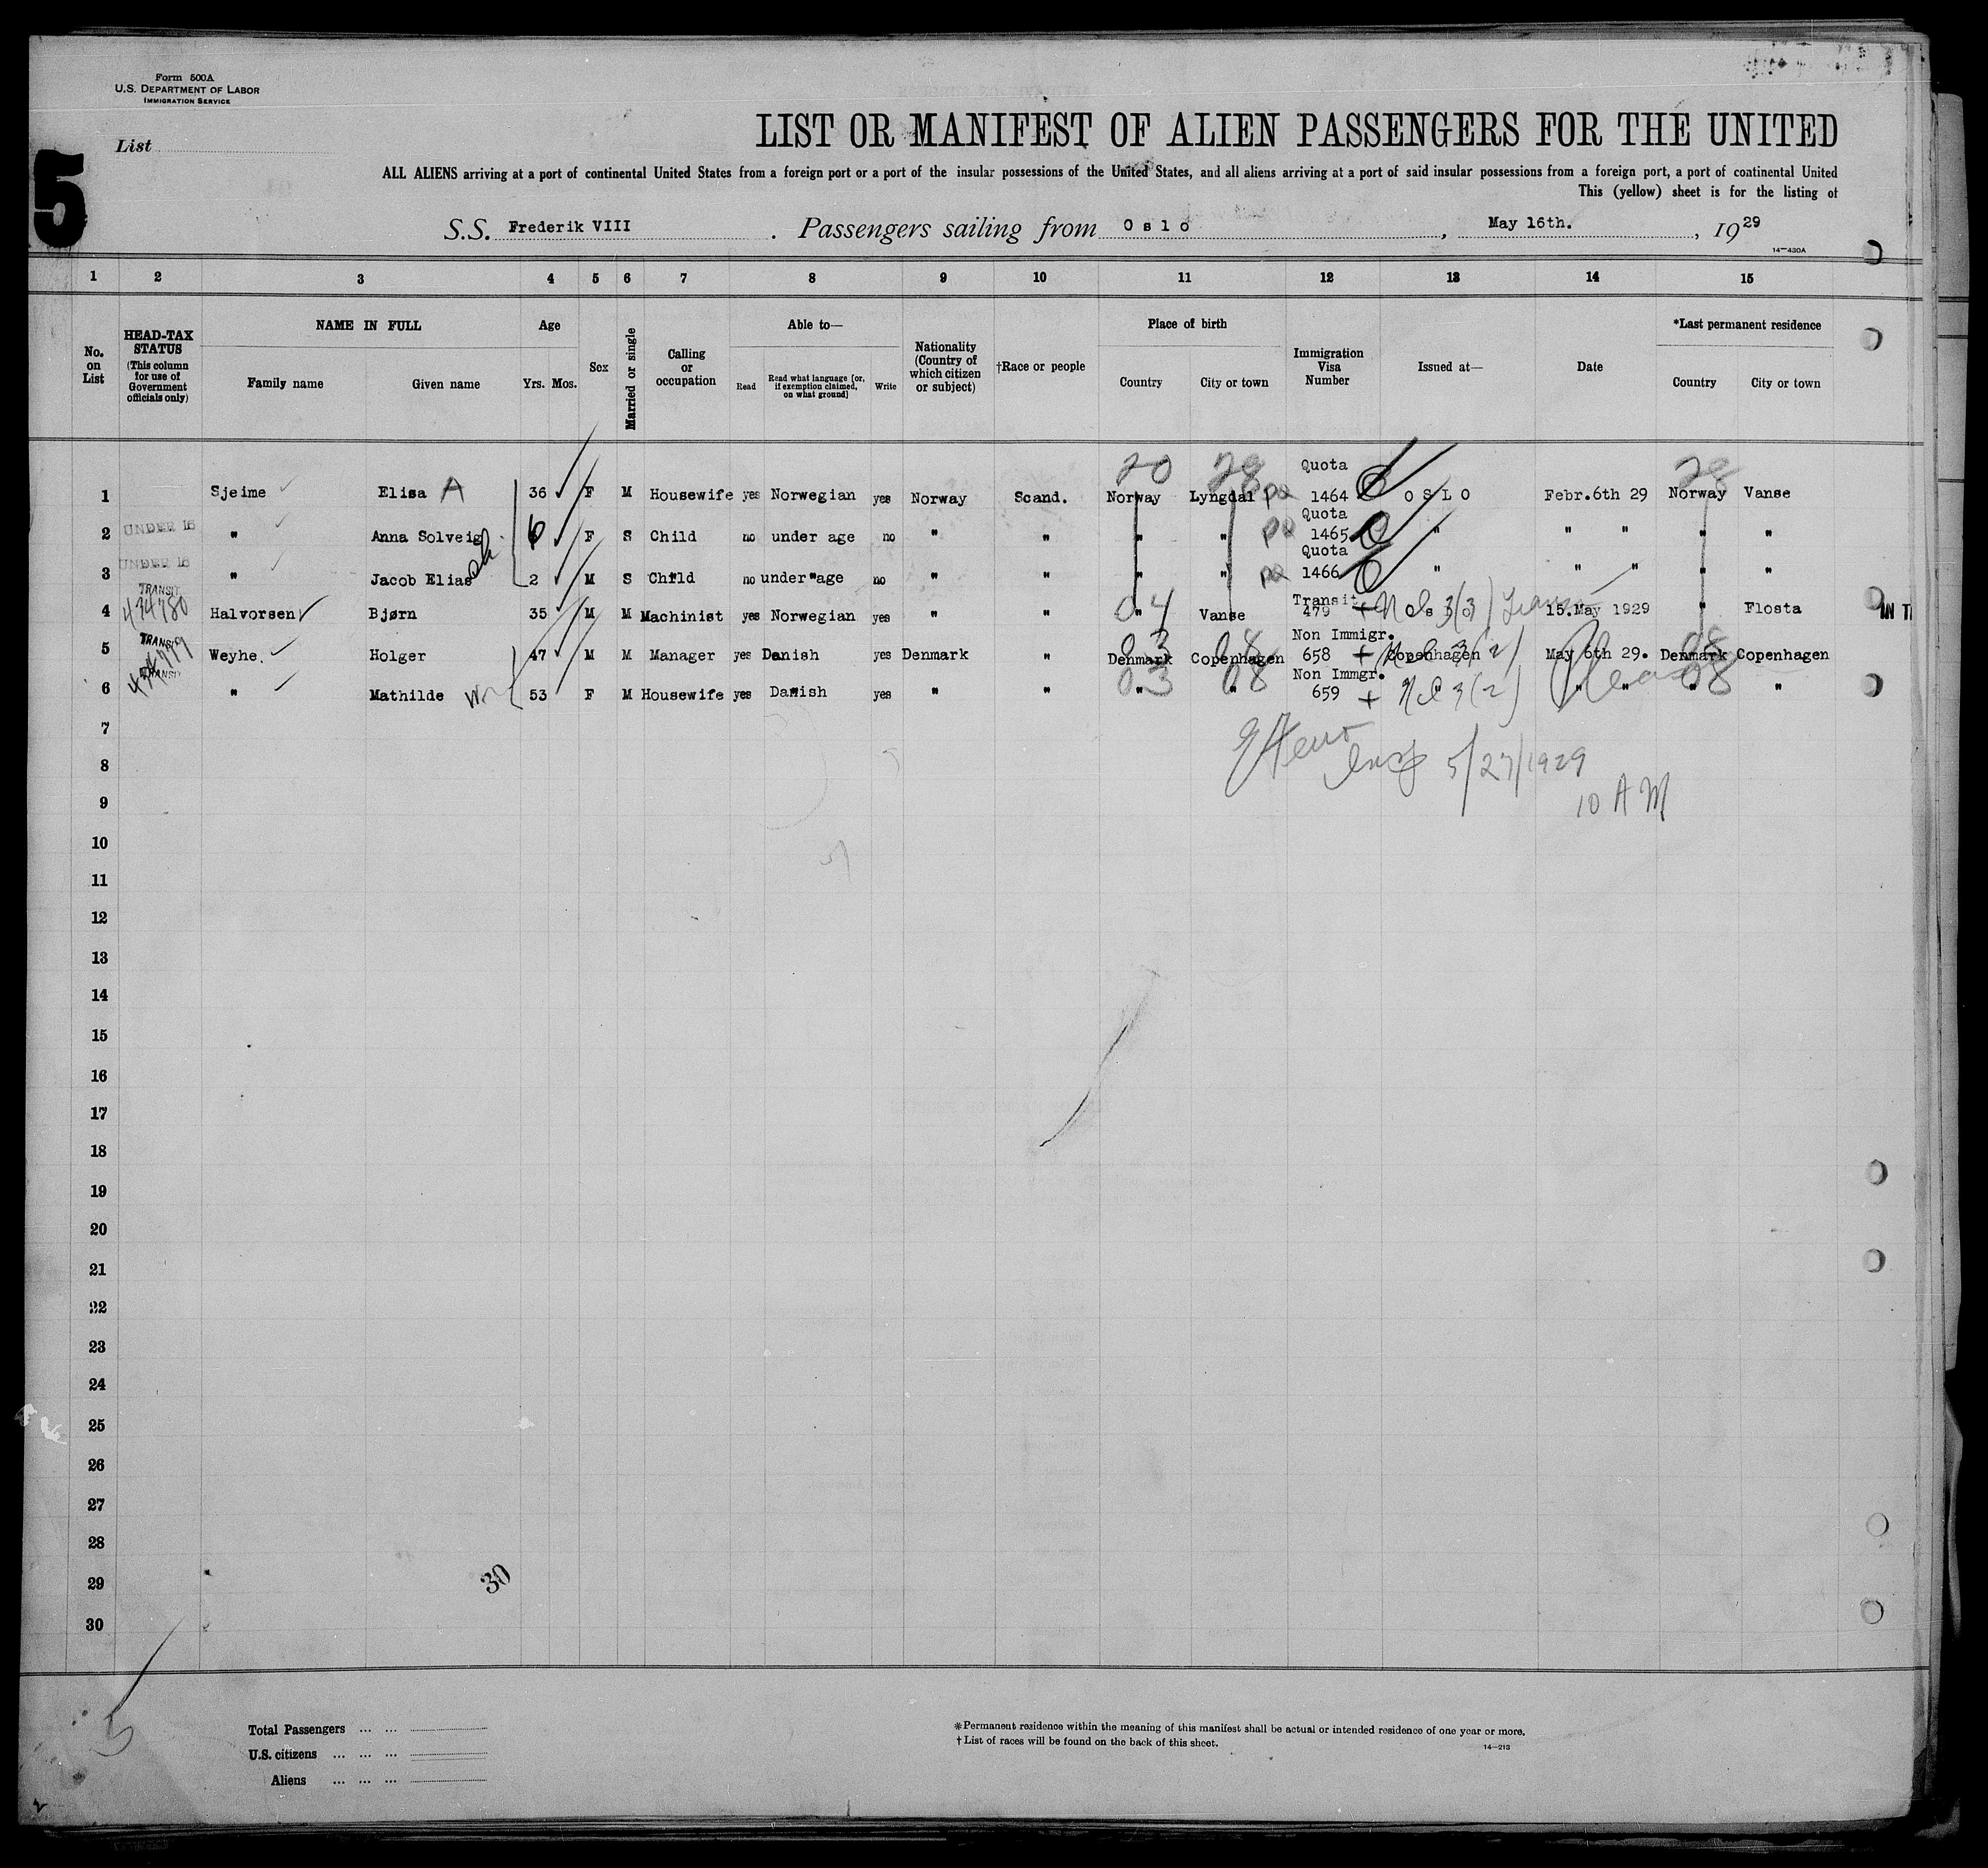 Form 500A
U.S. DEPARTMENT OF LABOR
IMMIGRATION SERVICE
List
5
LIST OR MANIFEST OF ALIEN PASSENGERS FOR THE UNITED
ALL ALIENS arriving at a port of continental United States from a foreign port or a port of the insular possessions of the United States, and all aliens arriving at a port of said insular possessions from a foreign port, a port of continental United
This (yellow) sheet is for the listing of
S.S. Frederik VIII . Passengers sailing from Oslo , May 16th. , 1929
14—430A
1 2 3 4 5 6 7 8 9 10 11 12 13 14 15
No. on List
HEAD-TAX STATUS (This column for use of Government officials only)
NAME IN FULL
Family name Given name
Age
Yrs. Mos.
Sex
Married or single
Calling or occupation
Able to—
Read Read what language [or, if exemption claimed, on what ground] Write
Nationality (Country of which citizen or subject)
†Race or people
Place of birth
Country City or town
Immigration Visa Number
Issued at—
Date
*Last permanent residence
Country City or town
20 28 Quota 28
1 Sjeime Elisa A 36 F M Housewife yes Norwegian yes Norway Scand. Norway Lyngdal 1464 OSLO Febr.6th 29 Norway Vanse
Quota
2 UNDER 16 " Anna Solveig 6 F S Child no under age no " " " " 1465 " " " " "
Quota
3 UNDER 16 " Jacob Elias ch 2 M S Child no under age no " " " " 1466 " " " " "
TRANSIT Transit
4 434780 Halvorsen Bjørn 35 M M Machinist yes Norwegian yes " " 04 " Vanse 479 3(3) 15.May 1929 " Flosta
IN TI
TRANSIT Non Immigr.
5 Weyhe. Holger 47 M M Manager yes Danish yes Denmark " 03 Denmark 08 Copenhagen 658 Copenhagen 3(2) May 6th 29. 08 Denmark Copenhagen
TRANSIT Non Immgr.
6 " Mathilde 53 F M Housewife yes Danish yes " " 03 " 08 " 659 3(2) " " " 08 "
7
8 5/27/1929
9 10 AM
10
11
12
13
14
15
16
17
18
19
20
21
22
23
24
25
26
27
28
29 30
30
5
Total Passengers ... ...
U.S. citizens ... ... ...
Aliens ... ... ...
*Permanent residence within the meaning of this manifest shall be actual or intended residence of one year or more.
†List of races will be found on the back of this sheet.
14—213